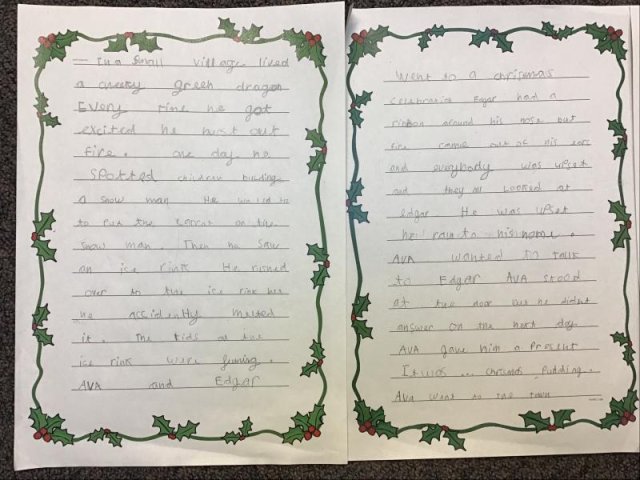 In a small village lived
a cheeky green dragon
Every time he got
excited he
fire. one day he
SPotted children building
a snow man He
to Put the carrot on the
snow man. Then he saw
an ice rink He rushed
over to the ice rink but
he accidently melted
it. The kids at the
ice rink were fuming.
AVA and Edgar
Went to a christmas
celebration Edgar had a
ribbon around his nose but
fire came out of his ears
and everybody was upset
and they all looked at
edgar He was upset
he ran to his home.
AVA wanted to talk
to Edgar AVA stood
at the door but he didnt
answer on the next day
AVA gave him a Present
It was ... Pudding.
AVA went to the town